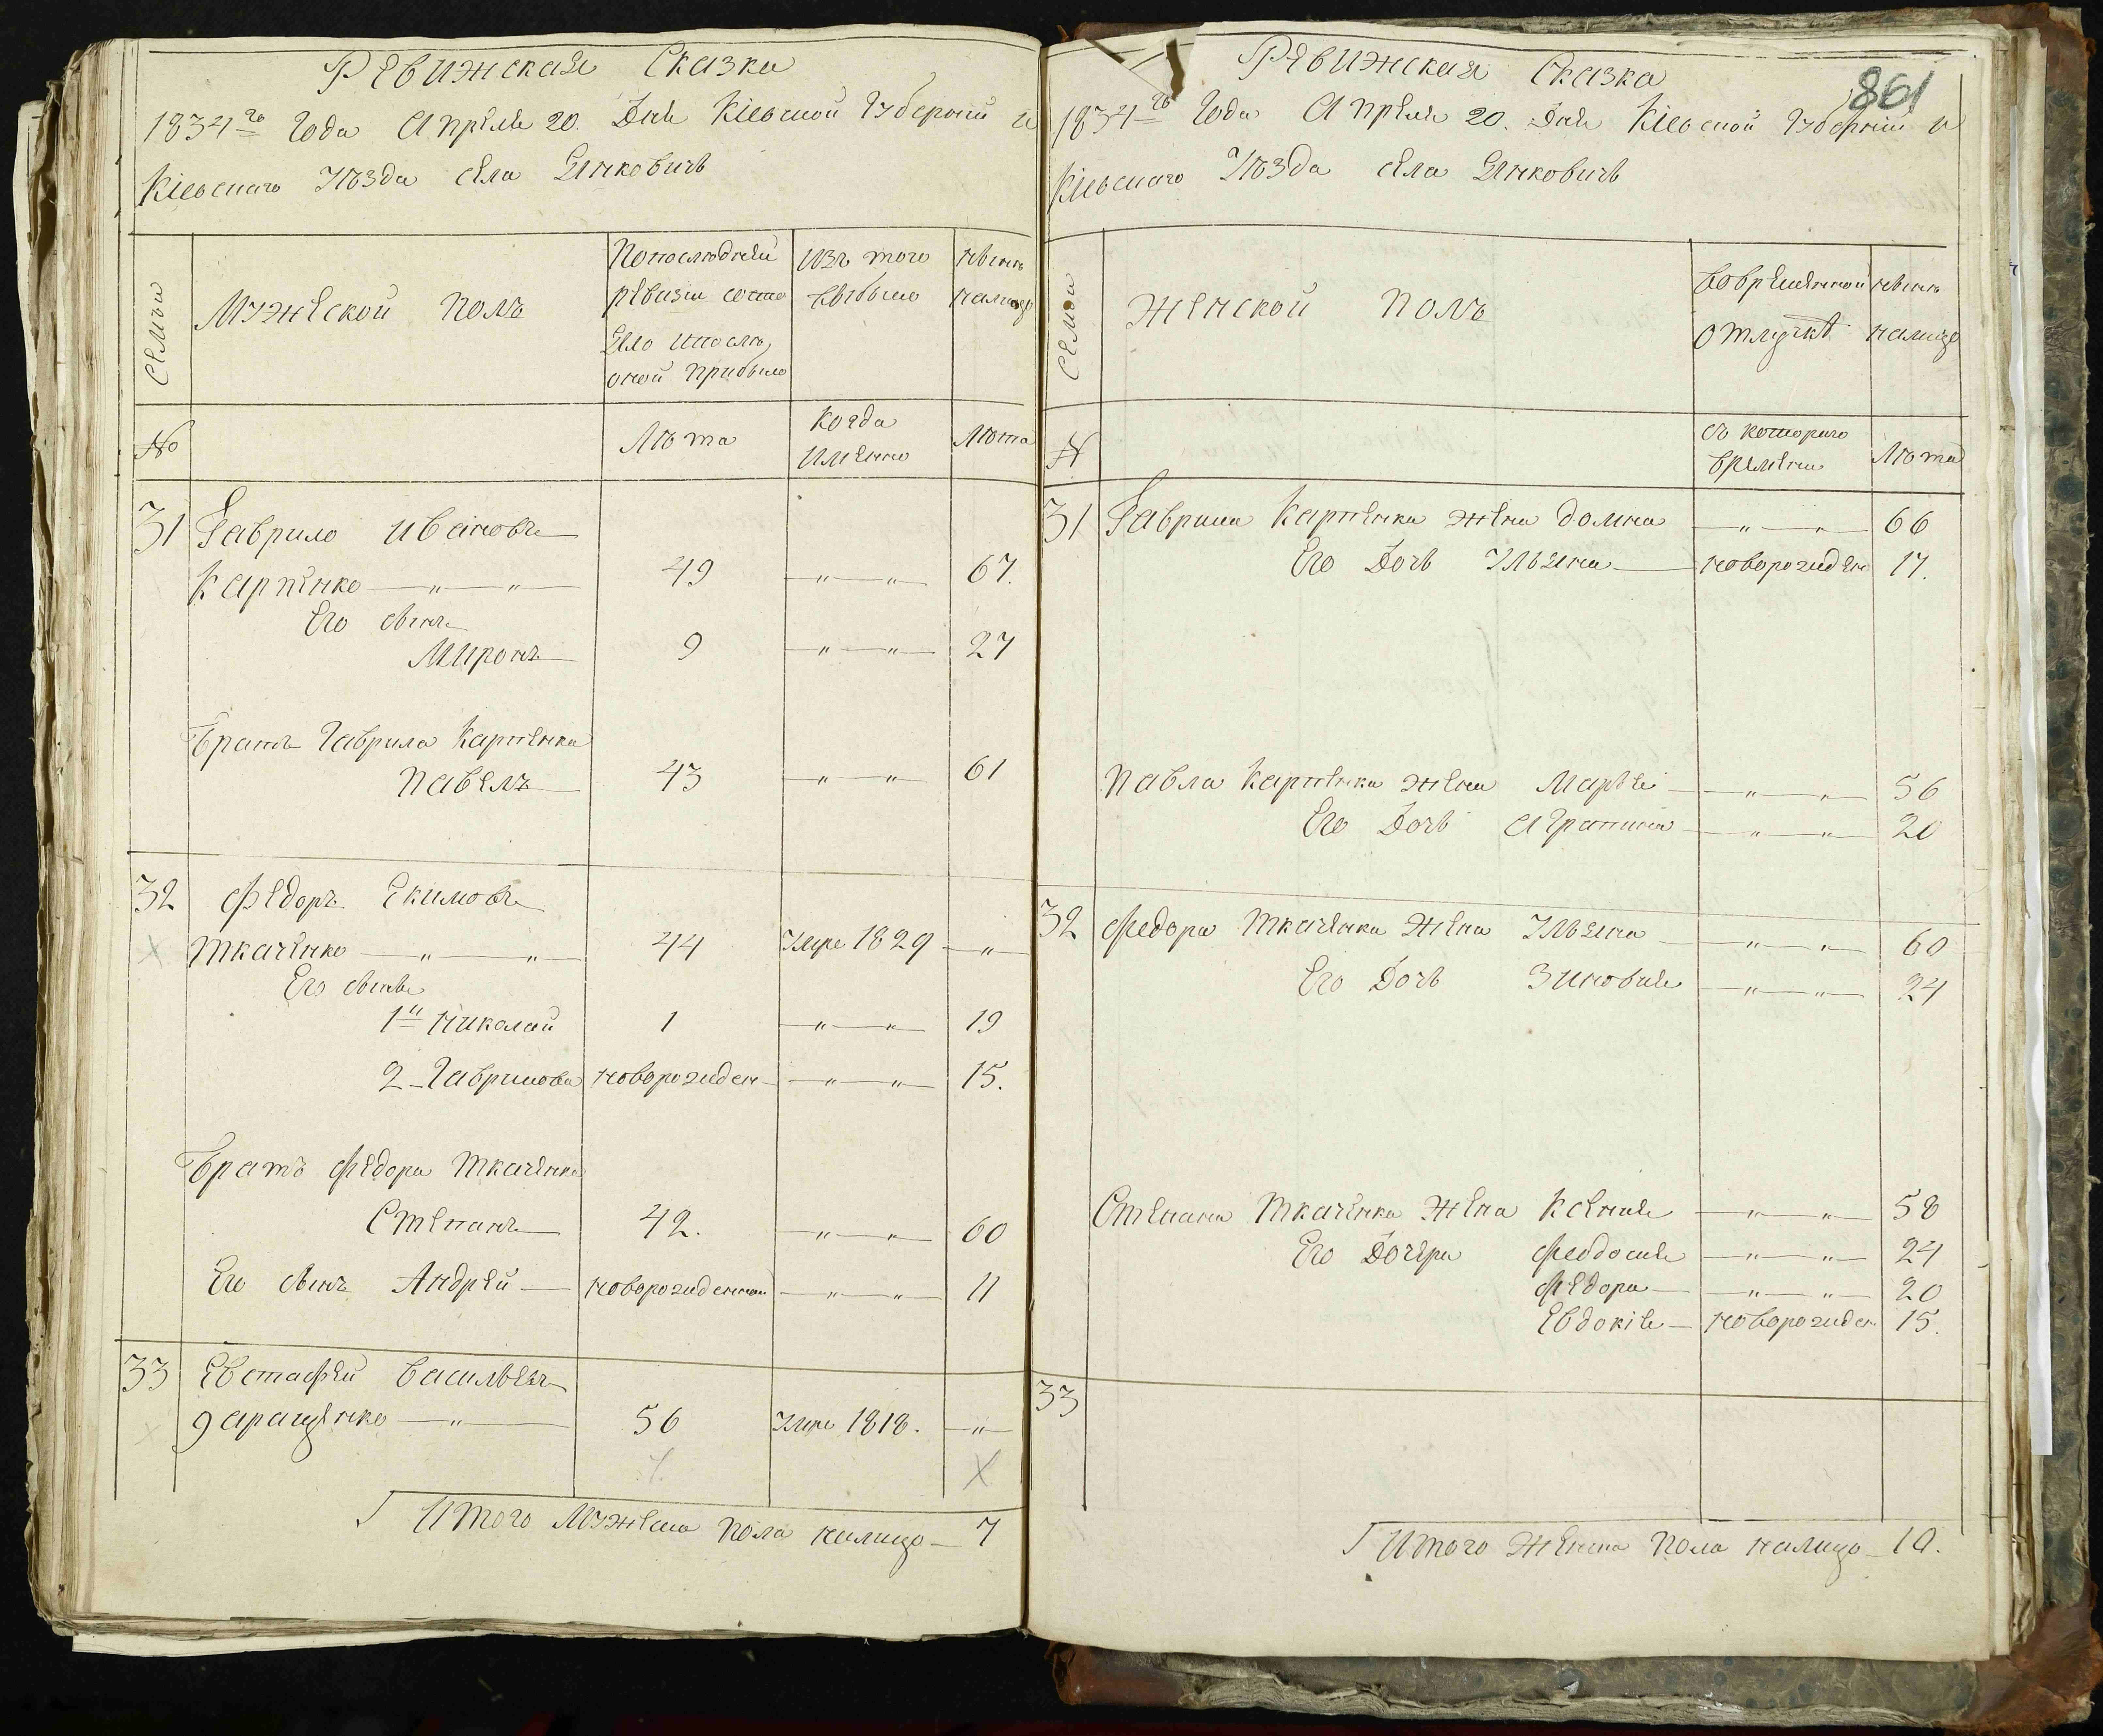 Ревижская Сказка
1834го Года Апреля 20. Дня Кіевской Губерніи и
Кіевскаго Уѣзда села Янковичь
Семьи
Мужеской полъ
Попослѣдней
ревизіи состо
яло ипослѣ
оной прибыло
Изъ того
выбыло
нынѣ
налицо
№
Лѣта
Когда
имянно
Лѣта
31 Гаврило Ивановъ
Карпенко — " — " — 49 — " — " — 67.
Его сынъ
Миронъ — 9 — " — " — 27
Братъ Гаврила Карпенка
Павелъ — 43 — " — " — 61
32 Федоръ Екимовъ
Ткаченко — " — " — 44 Умре 1829 — " —
Его сыны
1й Николай 1 — " — " — 19
2 - Гаврилова новорожден — " — " — 15.
Братъ Федора Ткаченка
Степанъ — 42. — " — " — 60
Его сынъ Андрей — новорожденной — " — " — 11
33 Евстафей Васильевъ
Дараущенко — " — 56 Умре 1818. — " —
Итого Мужеска пола налицо — 7
861
Ревижская Сказка
1834го Года Апреля 20. Дня Кіевской Губерніи и
Кіевскаго Уѣзда села Янковичь
Семьи
Женской полъ
Вовременной
отлучкѣ
нынѣ
налицо
№
съ котораго
времени
Лѣта
31 Гаврила Карпенка жена Домна — " — " — 66
Его Дочь Ульяна — новорожден 17.
Павла Карпенка жена Марья — " — " — 56
Его Дочь Аграпина — " — " — 20
32 Федора Ткаченка жена Ульяна — " — " — 60
Его Дочь Зиновия — " — " — 24
Степана Ткаченка жена Ксения — " — " — 58
Его Дочери Феодосия — " — " — 24
Федора — " — " — 20
Евдокія — новорожден 15.
33
Итого Женска пола налицо — 10.